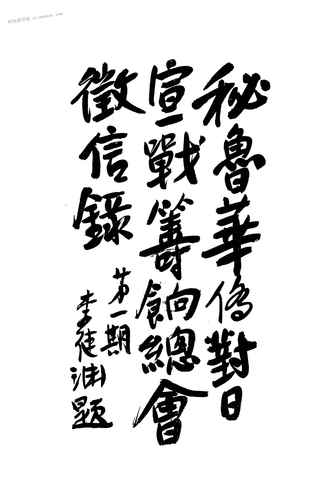 秘魯華僑對日
宣戰籌餉總會
徵信錄
第一期
題